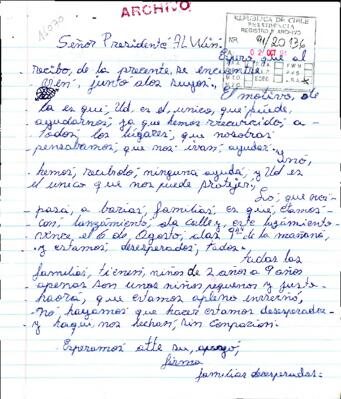 ARCHIVO
16020
REPUBLICA DE CHILE
PRESIDENCIA
REGISTRO Y ARCHIVO
NR. 91/20136
A 02 OCT 91
Señor Presidente: AlWin.
Espero, que al
recibo, de la presente, se encuentre
bien, junto alos suyos.,
El motivo, de
la es que, Ud. es el, unico, que puede,
ayudarnos, ya que hemos recurricido, a-
todos, los lugares, que nosotras
pensabamos, que nos ivan, ayudar.
y no,
hemos, recibido, ninguna ayuda, y Ud es
el unico que nos puede proteger,
Lo, que nos
pasa, a barias, familias, es que, estamos
con, lanzamiento, ala calle y este lanzamiento
vence, el de, Agosto, alas 9 de la mañana,
y estamos, desesperados, todos.
todas las
familias, tienen, niños de 2 años a 9 años
apenas son unos niños, pequenos y justo
haora, que estamos apleno invierno,
no, hayamos que hacer estamos desesperados
y haqui, nos hechan, sin conpacion.
Esperamos atte su, apoyo,
firma
familias desesperadas.